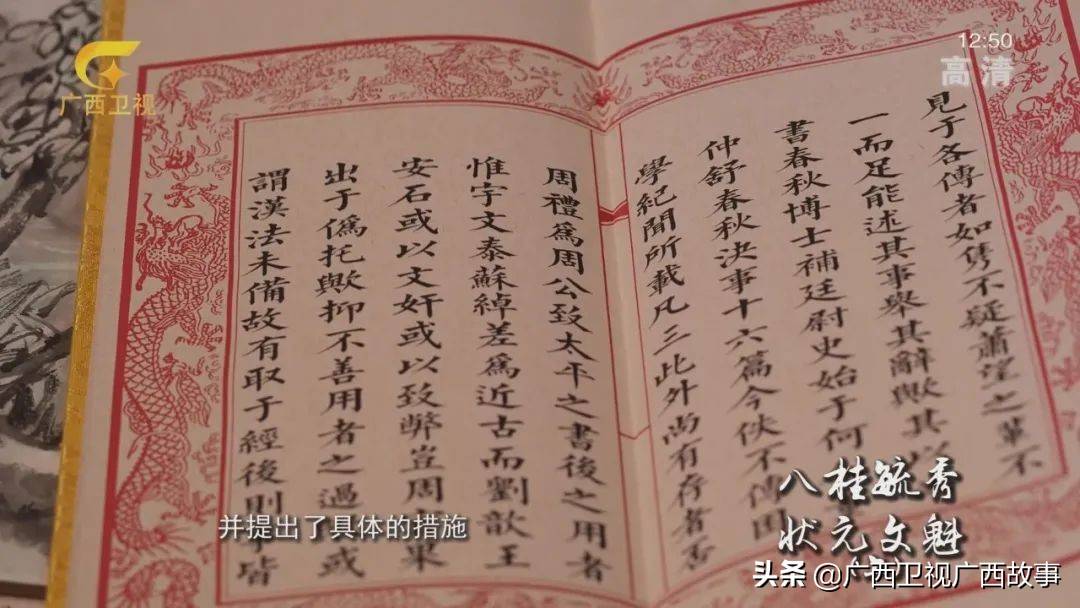 广西卫视
12:50
高清
見于各傳者如雋不疑蕭望之輩不
一而足能述其事舉其辭歟其
書春秋博士補廷尉史始于何
仲舒春秋決事十六篇今佚不傳困
學紀聞所載凡三此外尚有存者否
周禮爲周公致太平之書後之用者
惟宇文泰蘇綽差爲近古而劉歆王
安石或以文奸或以致弊豈周果
出于僞托歟抑不善用者之過或
謂漢法未備故有取于經後則皆
并提出了具体的措施
八桂毓秀
状元文魁
头条 @广西卫视广西故事